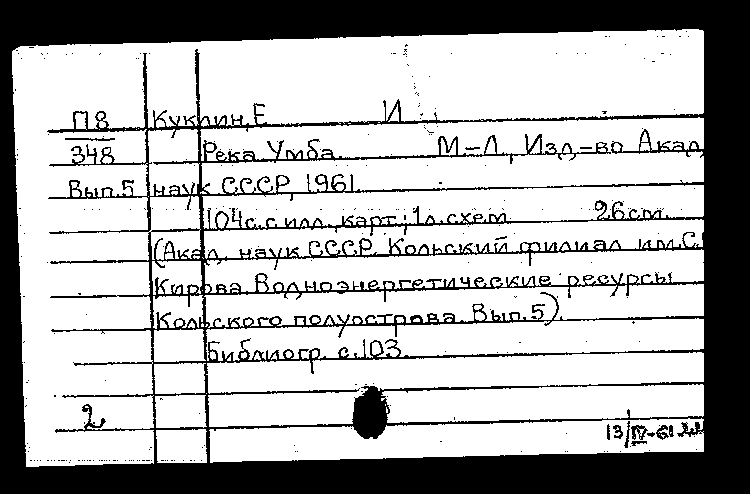 П8 Куклин, Е И
348 Река Умба. М-Л, Изд-во Акад.
Вып.5 наук СССР, 1961.
104с. с илл., карт.; 1л. схем 26см.
(Акад. наук СССР. Кольский филиал им. С.
Кирова. Водноэнергетические ресурсы
Кольского полуострова. Вып. 5).
Библиогр. с. 103.
2
13/IV-61